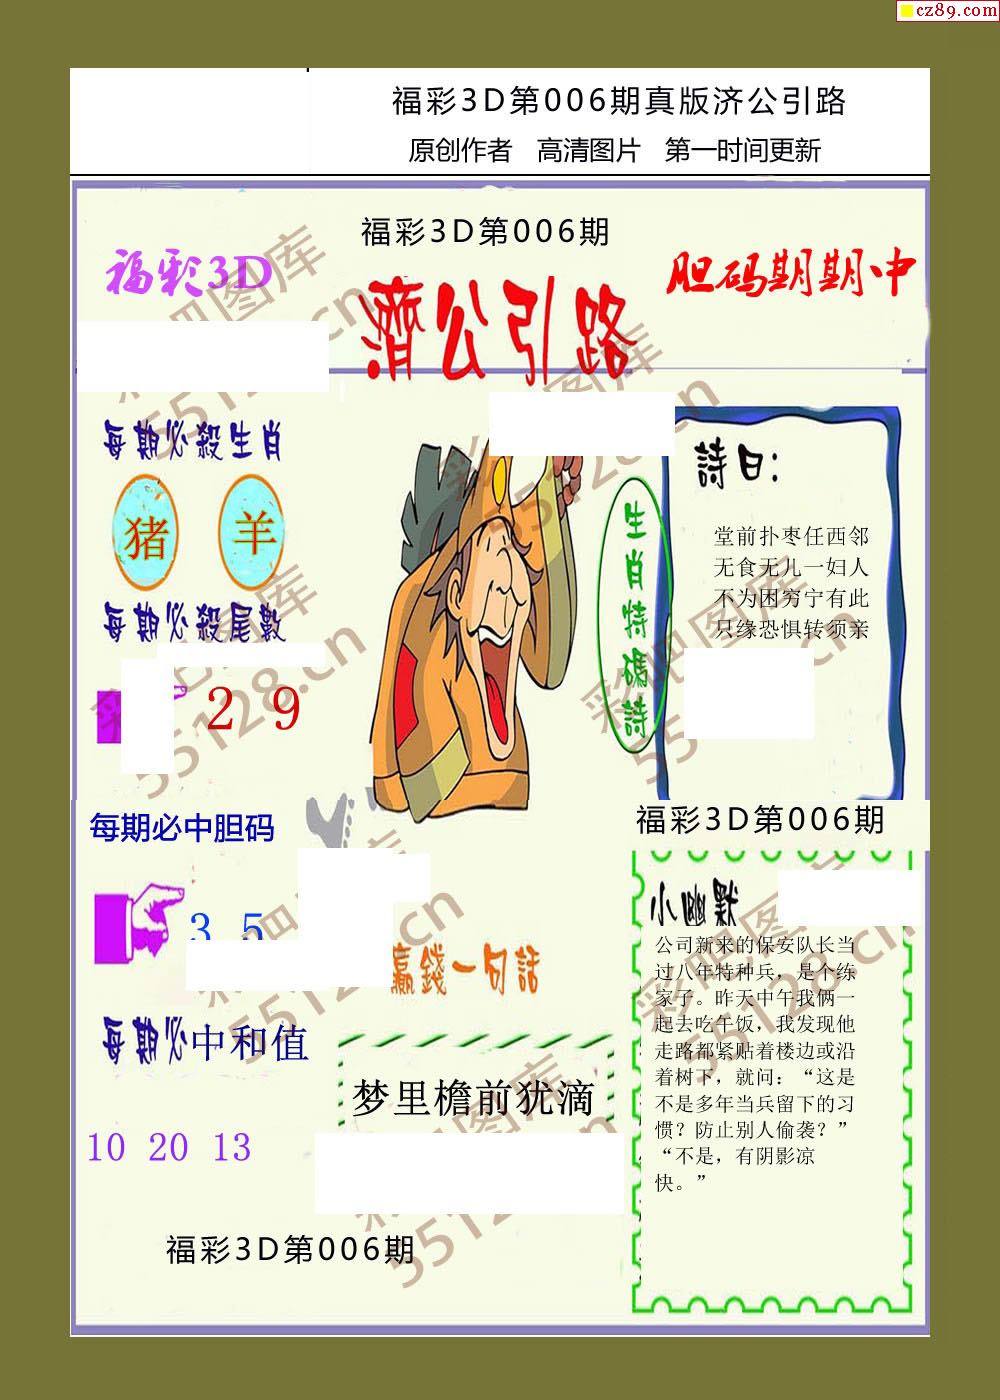 cz89.com
福彩3D第006期真版济公引路
原创作者 高清图片 第一时间更新
福彩3D第006期
福彩3D
胆码期期中
濟公引路
每期必殺生肖
猪 羊
每期必殺尾數
2 9
生肖特碼詩
詩曰：
堂前扑枣任西邻
无食无儿一妇人
不为困穷宁有此
只缘恐惧转须亲
每期必中胆码
3 5
赢錢一句話
每期必中和值
梦里檐前犹滴
10 20 13
福彩3D第006期
福彩3D第006期
小幽默
公司新来的保安队长当
过八年特种兵，是个练
家子。昨天中午我俩一
起去吃午饭，我发现他
走路都紧贴着楼边或沿
着树下，就问：“这是
不是多年当兵留下的习
惯？防止别人偷袭？”
“不是，有阴影凉
快。”
彩吧图库
55128.cn